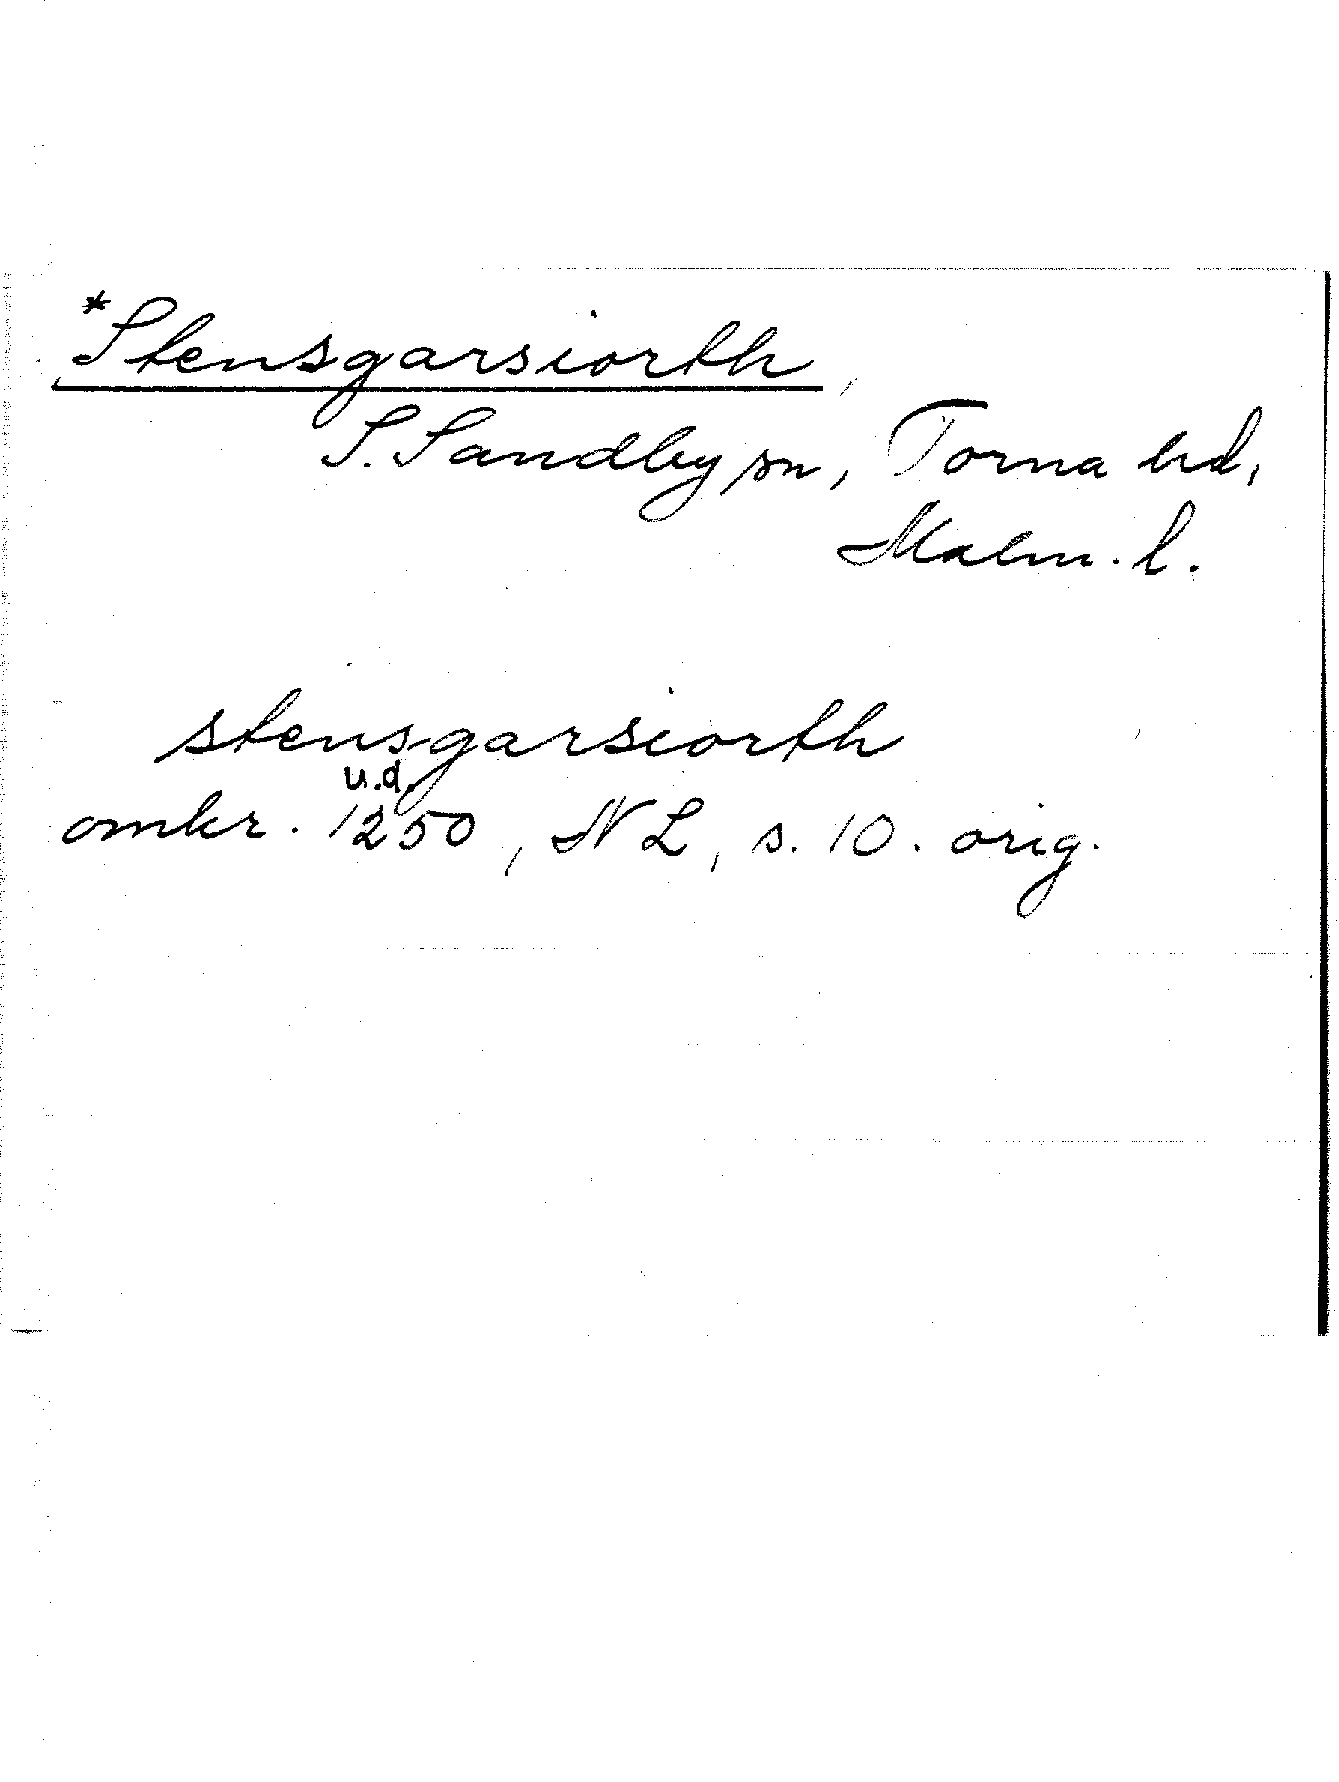 *Stensgarsiorth,
S. Sandby sn, Torna hd,
Malm. l.
stensgarsiorth
u.d.
omkr. 1250, NL, s. 10. orig.